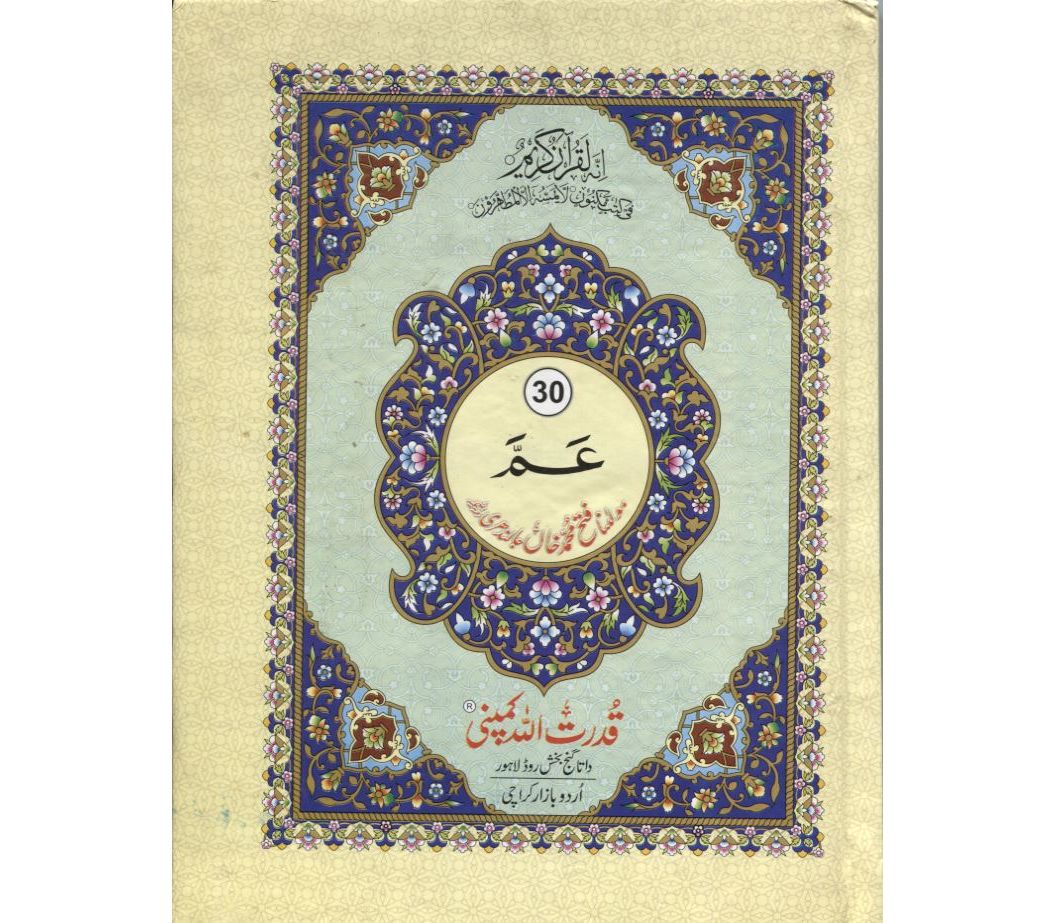 إنه لقرآن كريم
في كتب مكنون لا يمسه إلا المطهرون
30
عَمَّ
مولانا فتح محمد خان جالندھری
قدرت اللہ کمپنی ®
داتا گنج بخش روڈ لاہور
اُردو بازار کراچی